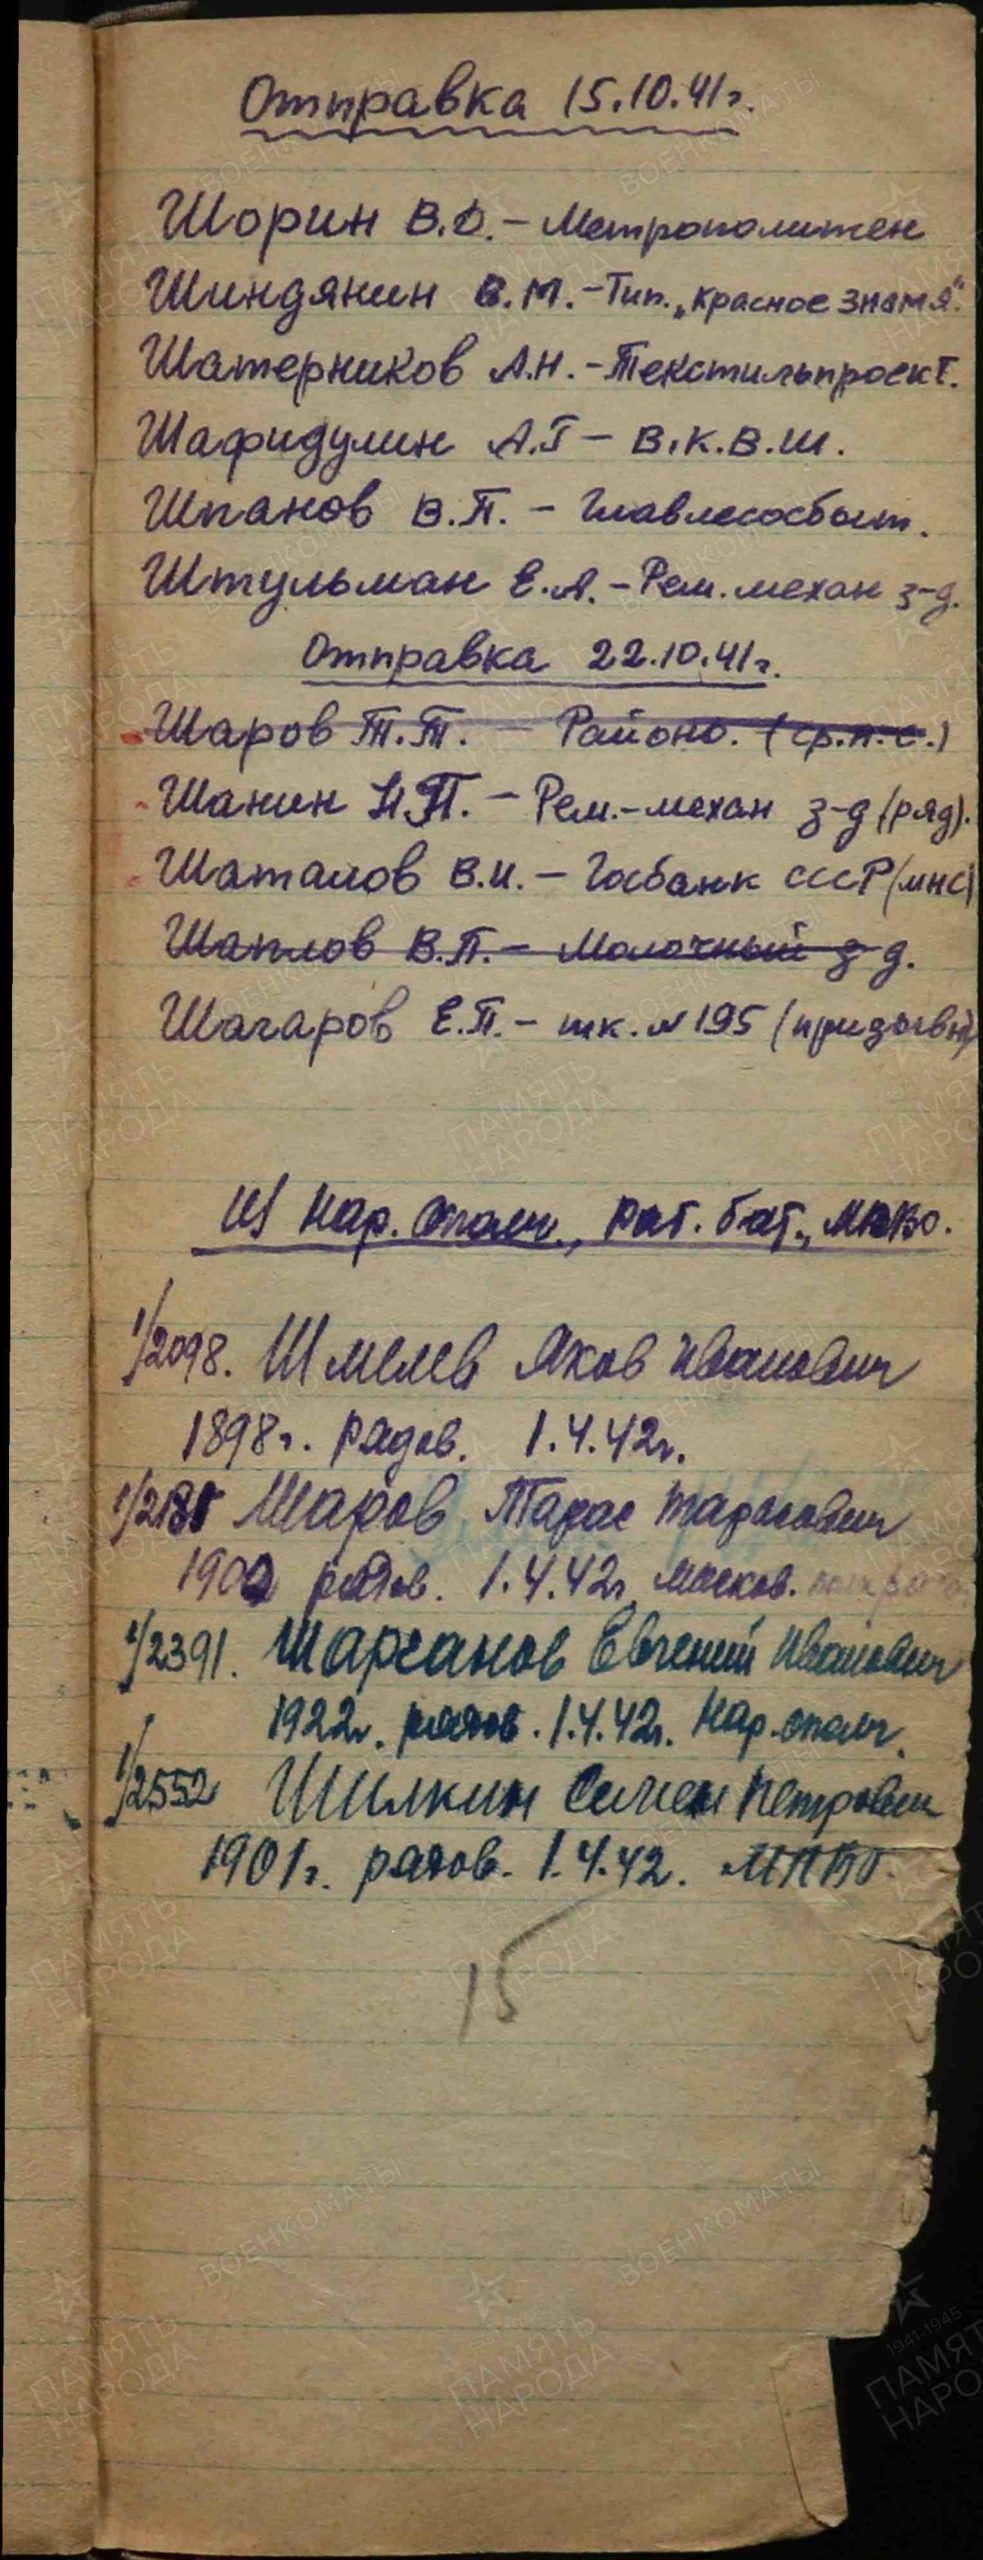 Отправка 15.10.41г.
Шорин В.Д. - Метрополитен
Шиндянин В.М. - Тип. „Красное знамя".
Шатерников А.Н. - Текстильпроект.
Шафидулин А.Г - В.К.В.Ш.
Шпанов В.П. - Главлесосбыт.
Штульман Е.А. - Рем. механ з-д.
Отправка 22.10.41г.
Шаров Т.Т. - Районо. (ср.п.с.)
Шанин Н.П. - Рем.-механ з-д (ряд).
Шаталов В.И. - Госбанк СССР (мнс)
Шаплов В.П. - Молочный з-д.
Шагаров Е.П. - шк. №195 (призывн)
Из Нар. ополч., раб. бат., МПВО.
1/2098. Шмелев Яков Иванович
1898г. рядов. 1.4.42г.
Шаров Тарас Тарасович
рядов. 1.4.42г. Москов.
1/2391. Шарганов Евгений Иванович
1922г. рядов. 1.4.42г. Нар. ополч.
1/2552 Шилкин Семен Петрович
1901г. рядов. 1.4.42. МПВО.
15
ПАМЯТЬ НАРОДА
ВОЕНКОМАТЫ
1941-1945